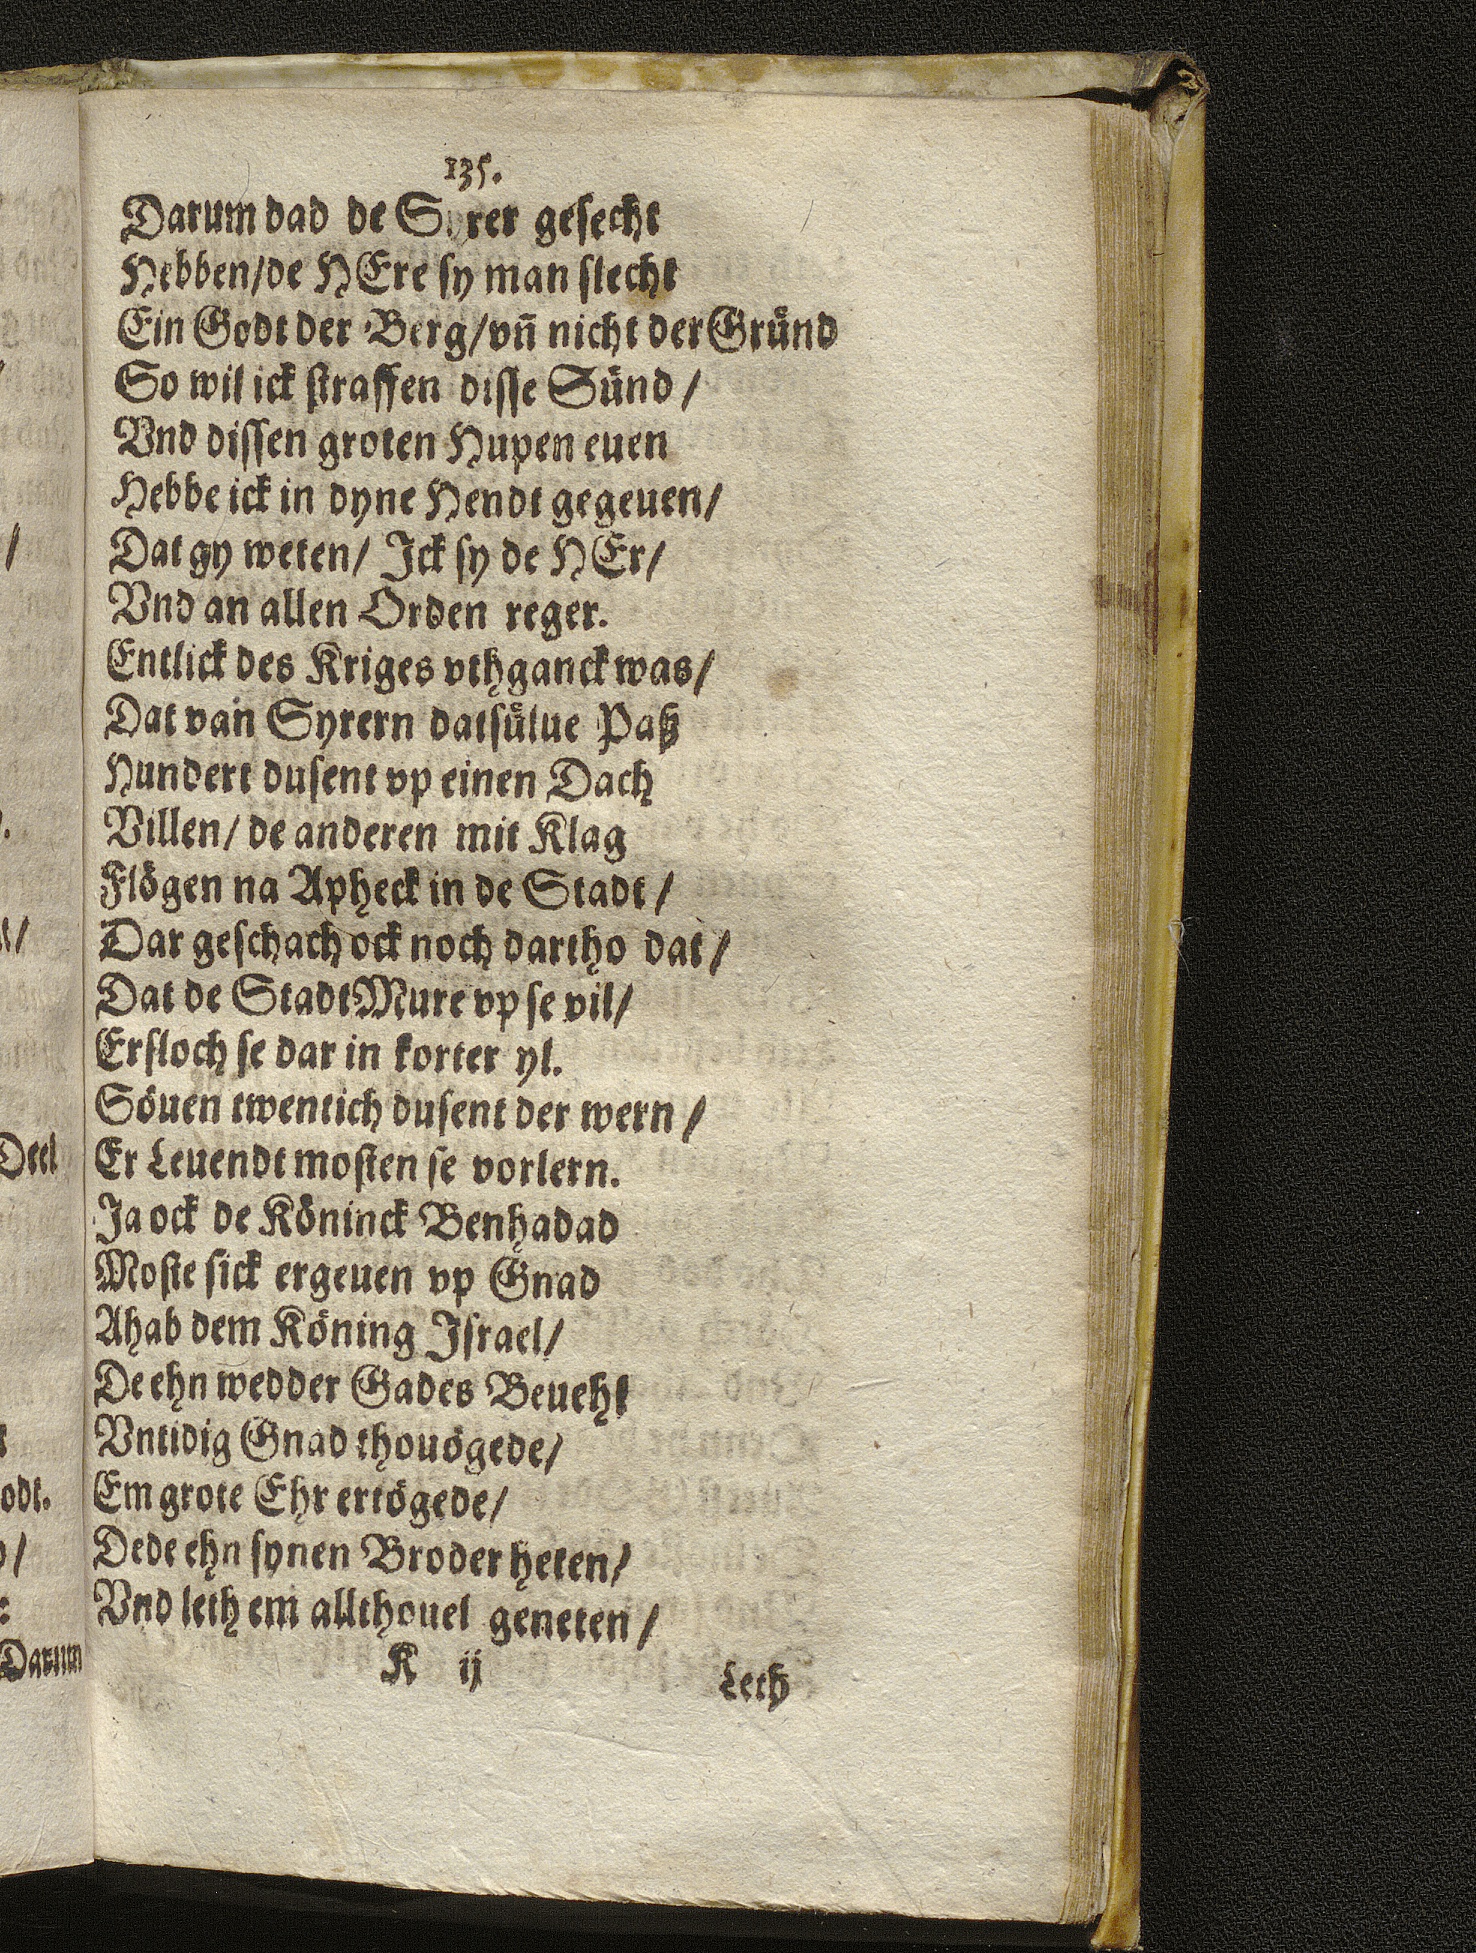 135.
Darum dad de Syrer gesecht
Hebben/de HEre sy man slecht
Ein Godt der Berg/vn̄ nicht der Gruͤnd
So wil ick straffen disse Suͤnd/
Vnd dissen groten Hupen euen
Hebbe ick in dyne Hendt gegeuen/
Dat gy weten/ Ick sy de HEr/
Vnd an allen Orden reger.
Entlick des Kriges vthganck was/
Dat van Syrern datsuͤlue Paß
Hundert dusent vp einen Dach
Villen/ de anderen mit Klag
Flögen na Apheck in de Stadt/
Dar geschach ock noch dartho dat/
Dat de StadtMure vp se vil/
Ersloch se dar in korter yl.
Söuen twentich dusent der wern/
Er Leuendt mosten se vorlern.
Ja ock de Köninck Benhadad
Moste sick ergeuen vp Gnad
Ahab dem Köning Israel/
De ehn wedder Gades Beuehl
Vntidig Gnad thouögede/
Em grote Ehr ertögede/
Dede ehn synen Broder heten/
Vnd leth em allthouel geneten/
K ij Leth
Deel
odt.
Darum